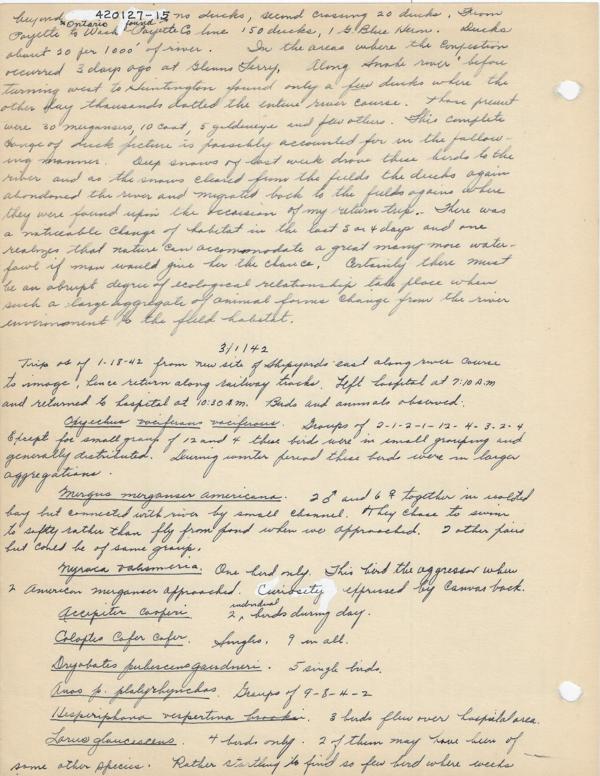 beyond 420127-15 no ducks, second crossing 20 ducks. From
Ontario found
Payette to Wash Payette Co line 150 ducks, 1 G. Blue Heron. Ducks
about 20 per 1000' of river. In the areas where the congestion
occurred 3 days ago at Glenns Ferry. Along Snake river before
turning west to Huntington found only a few ducks where the
other day thousands dotted the entire river course. Those present
were 30 mergansers, 10 coot, 5 goldeneye and few others. This complete
change of duck picture is possibly accounted for in the follow-
ing manner. Deep snows of last week drove these birds to the
river and as the snows cleared from the fields the ducks again
abandoned the river and migrated back to the fields again where
they were found upon the occasion of my return trip. There was
a noticeable change of habitat in the last 3 or 4 days and one
realizes that nature can accommodate a great many more water-
fowl if man would give her the chance. Certainly there must
be an abrupt degree of ecological relationship take place when
such a large aggregate of animal forms change from the river
environment to the field habitat.
3/1/42
Trip as of 1-18-42 from new site of Shipyards east along river course
to image, hence return along railway tracks. Left hospital at 7:10 A.M
and returned to hospital at 10:30 A.M. Birds and animals observed.
Oxyechus vociferous vociferous. Groups of 2-1-2-1-12-4-3-2-4
Except for small group of 12 and 4 these birds were in small grouping and
generally distributed. During winter period these birds were in larger
aggregations.
Mergus merganser americana. 2 ♂ and 6 ♀ together in isolated
bay but connected with river by small channel. They chose to swim
to safety rather than fly from pond when we approached. 2 other pairs
but could be of same group.
Nyroca valisineria. One bird only. This bird the aggressor when
2 American merganser approached. Curiosity expressed by Canvas back.
Accipiter cooperi 2 individual birds during day.
Colaptes cafer cafer. Singles. 9 in all.
Dryobates pubescens gairdneri. 5 single birds.
Anas p. platyrhynchos. Groups of 9-8-4-2
Hesperiphona vespertina brooksi. 3 birds flew over hospital area.
Larus glaucescens. 4 birds only. 2 of them may have been of
some other species. Rather startling to find so few bird where weeks